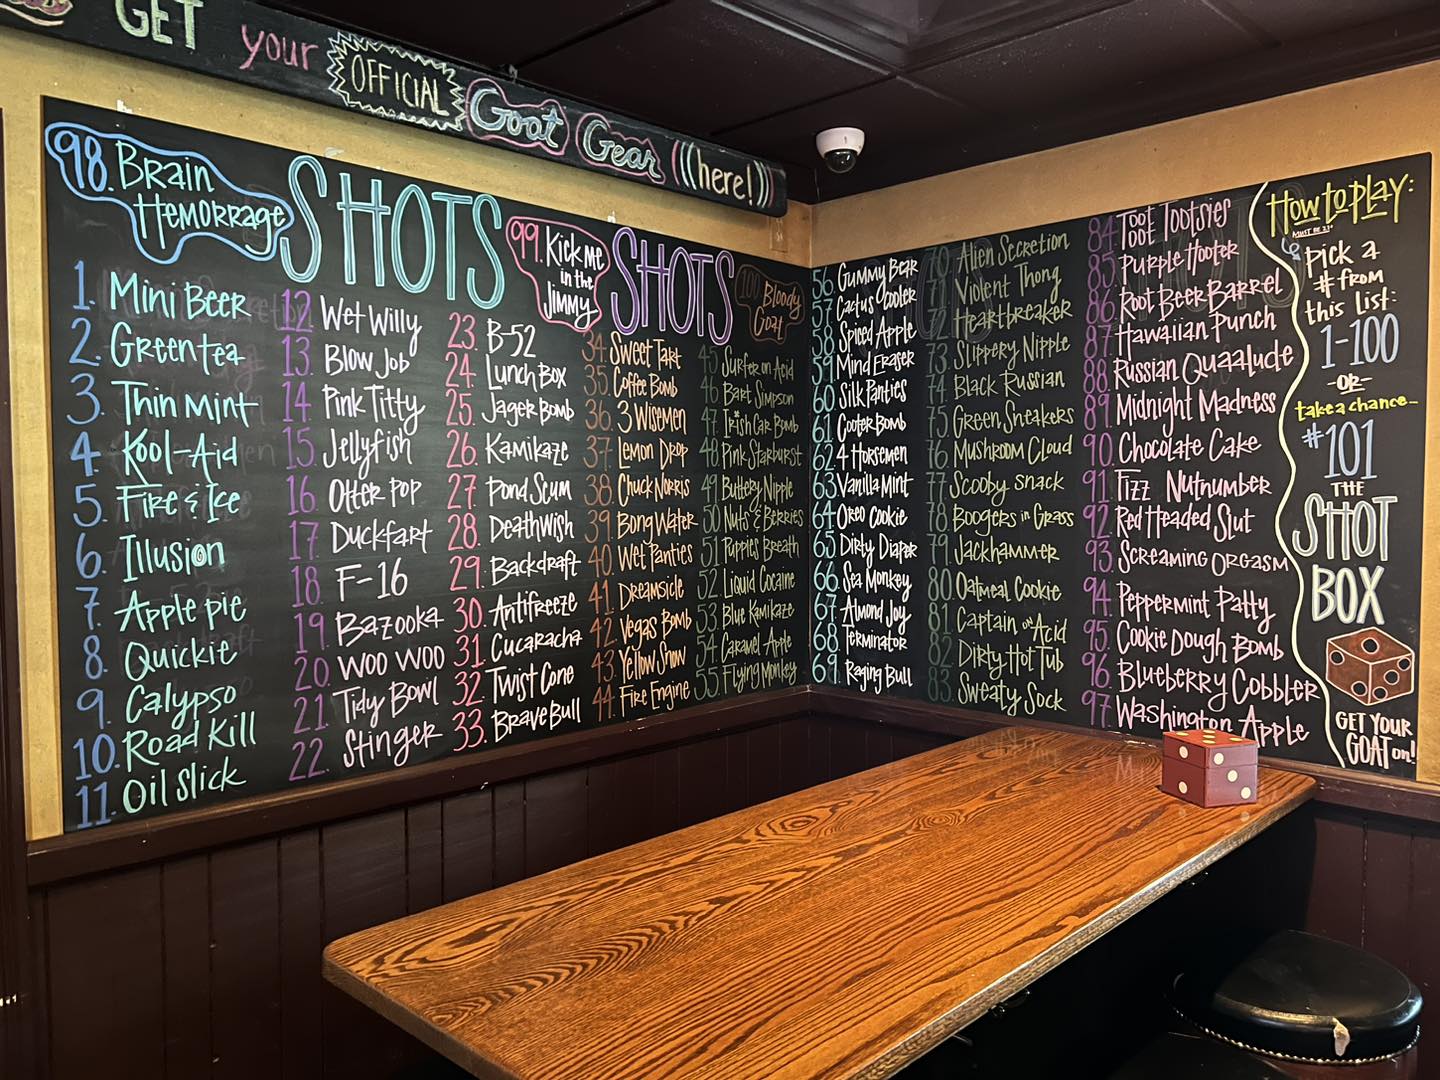 GET your OFFICIAL Goat Gear ((here!))
98. Brain
Hemorrage
SHOTS
99. Kick me
in the
Jimmy
SHOTS
100 Bloody
Goat
1. Mini Beer
2. Green tea
3. Thin Mint
4. Kool-Aid
5. Fire & Ice
6. Illusion
7. Apple pie
8. Quickie
9. Calypso
10. Road Kill
11. Oil Slick
12. Wet Willy
13. Blow Job
14. Pink Titty
15. Jellyfish
16. Otter Pop
17. Duckfart
18. F-16
19. Bazooka
20. Woo Woo
21. Tidy Bowl
22. Stinger
23. B-52
24. Lunch Box
25. Jager Bomb
26. Kamikaze
27. Pond Scum
28. Deathwish
29. Backdraft
30. Antifreeze
31. Cucaracha
32. Twist Cone
33. Brave Bull
34. Sweet Tart
35. Coffee Bomb
36. 3 Wisemen
37. Lemon Drop
38. Chuck Norris
39. Bong Water
40. Wet Panties
41. Dreamsicle
42. Vegas Bomb
43. Yellow Snow
44. Fire Engine
45. Surfer on Acid
46. Bart Simpson
47. Irish Car Bomb
48. Pink Starburst
49. Buttery Nipple
50. Nuts & Berries
51. Puppies Breath
52. Liquid Cocaine
53. Blue Kamikaze
54. Caramel Apple
55. Flying Monkey
56. Gummy Bear
57. Cactus Cooler
58. Spiced Apple
59. Mind Eraser
60. Silk Panties
61. Cooter Bomb
62. 4 Horsemen
63. Vanilla Mint
64. Oreo Cookie
65. Dirty Diaper
66. Sea Monkey
67. Almond Joy
68. Terminator
69. Raging Bull
70. Alien Secretion
71. Violent Thong
72. Heartbreaker
73. Slippery Nipple
74. Black Russian
75. Green Sneakers
76. Mushroom Cloud
77. Scooby snack
78. Boogers in Grass
79. Jackhammer
80. Oatmeal Cookie
81. Captain on Acid
82. Dirty Hot Tub
83. Sweaty Sock
84. Toot Tootsies
85. Purple Hooter
86. Root Beer Barrel
87. Hawaiian Punch
88. Russian Quaalude
89. Midnight Madness
90. Chocolate Cake
91. Fizz Nutnumber
92. Red Headed Slut
93. Screaming Orgasm
94. Peppermint Patty
95. Cookie Dough Bomb
96. Blueberry Cobbler
97. Washington Apple
How to play:
MUST BE 21+
Pick a
# from
this list:
1-100
-OR-
take a chance...
#101
THE
SHOT
BOX
GET YOUR
GOAT on!